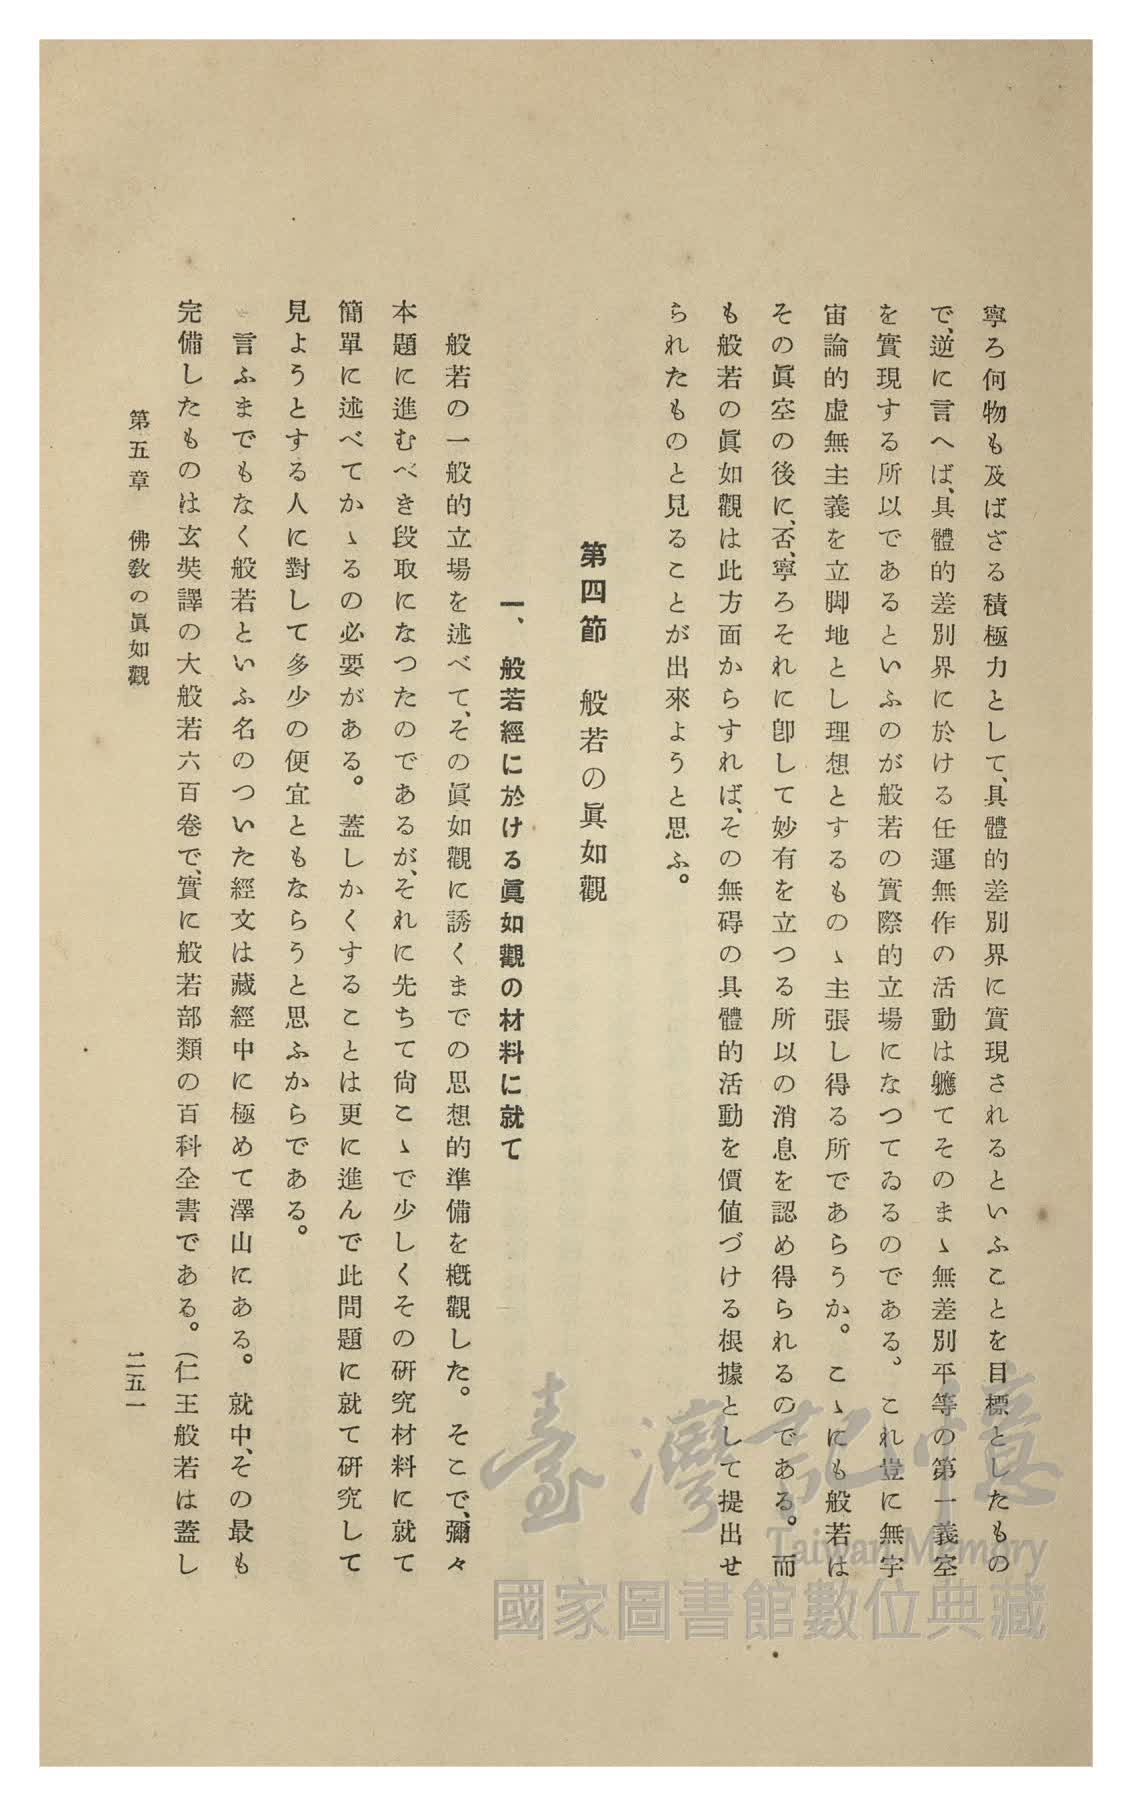 寧ろ何物も及ばざる積極力として、具體的差別界に實現されるといふことを目標としたもの
で、逆に言へば、具體的差別界に於ける任運無作の活動は軈てそのまゝ無差別平等の第一義空
を實現する所以であるといふのが般若の實際的立場になつてゐるのである。これ豈に無宇
宙論的虛無主義を立脚地とし理想とするものゝ主張し得る所であらうか。こゝにも般若は
その眞空の後に、否、寧ろそれに卽して妙有を立つる所以の消息を認め得られるのである。而
も般若の眞如觀は此方面からすれば、その無碍の具體的活動を價値づける根據として提出せ
られたものと見ることが出來ようと思ふ。
第四節 般若の眞如觀
一、般若經に於ける眞如觀の材料に就て
般若の一般的立場を述べて、その眞如觀に誘くまでの思想的準備を槪觀した。そこで、彌々
本題に進むべき段取になつたのであるが、それに先ちて尙こゝで少しくその硏究材料に就て
簡單に述べてかゝるの必要がある。蓋しかくすることは更に進んで此問題に就て硏究して
見ようとする人に對して多少の便宜ともならうと思ふからである。
言ふまでもなく般若といふ名のついた經文は藏經中に極めて澤山にある。就中、その最も
完備したものは玄奘譯の大般若六百卷で、實に般若部類の百科全書である。(仁王般若は蓋し
第五章 佛敎の眞如觀
二五一
臺灣記憶
Taiwan Memory
國家圖書館數位典藏